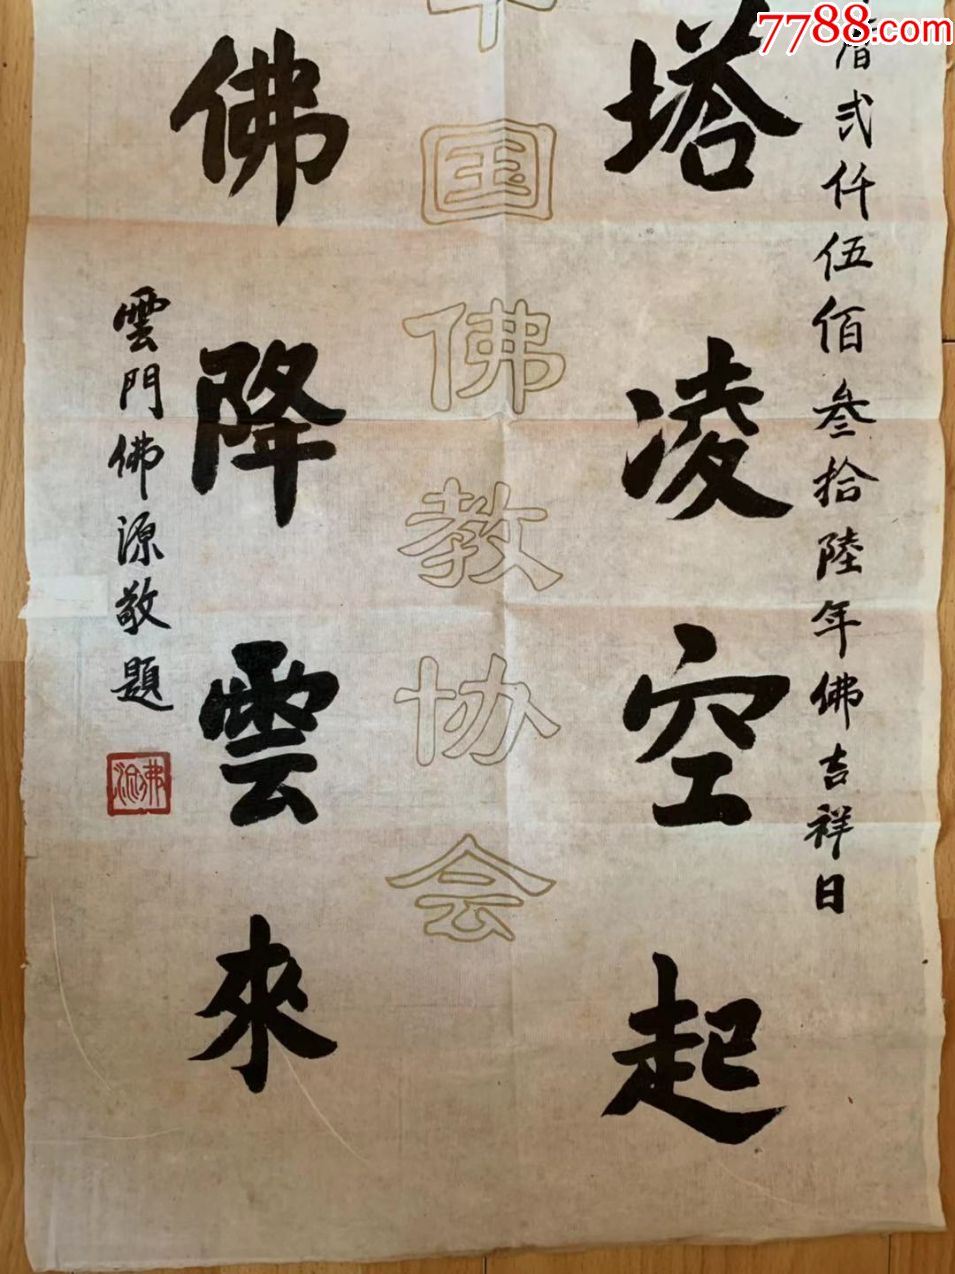 7788.com
曆貳仟伍佰叁拾陸年佛吉祥日
塔凌空起
中国佛教协会
佛降雲來
雲門佛源敬題
佛源